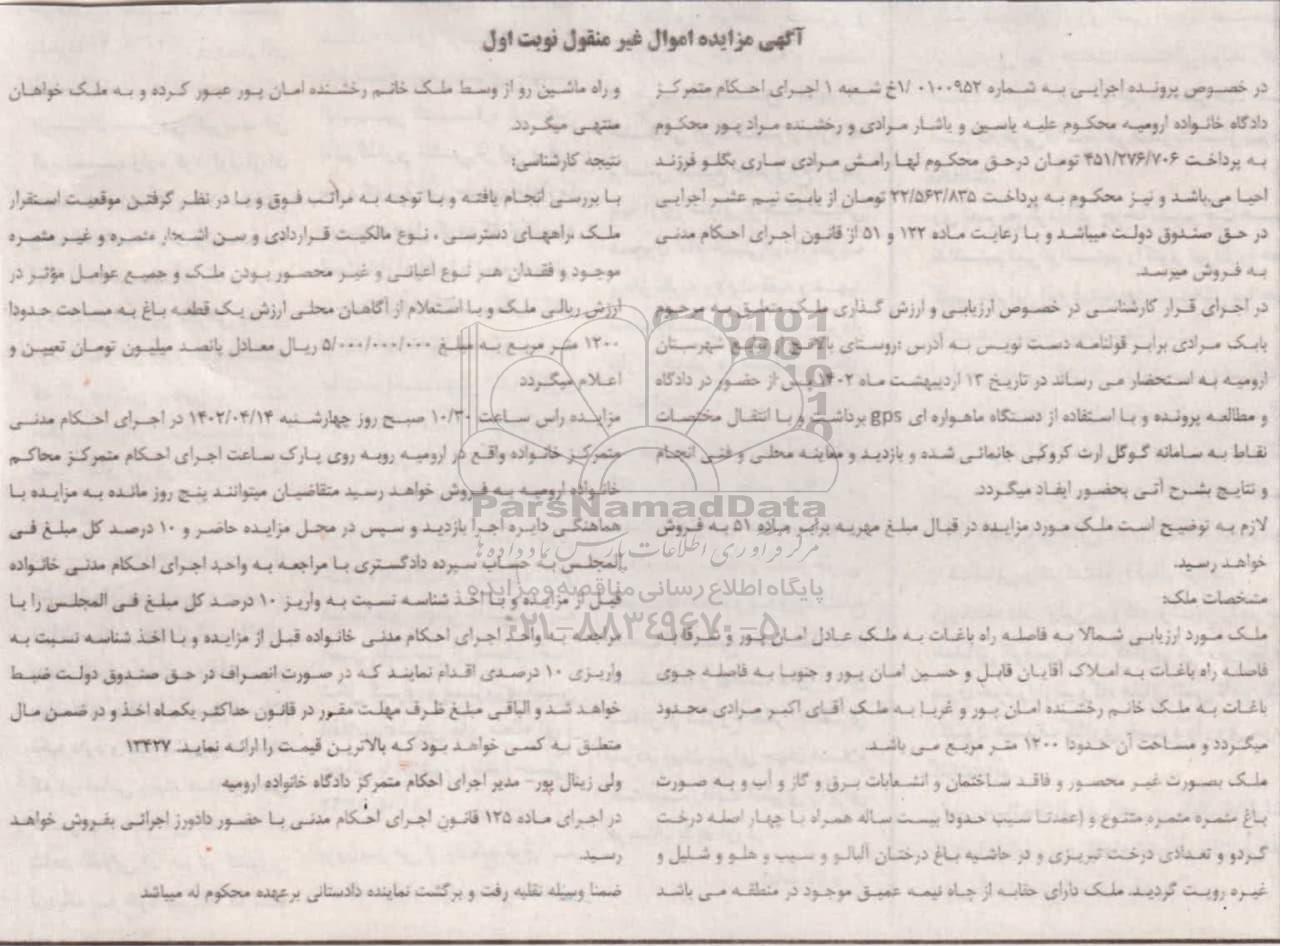 آگهی مزایده اموال غیر منقول نوبت اول
در خصوص پرونده اجرایی به شماره ۰۱۰۰۹۵۲ /۱خ شعبه ۱ اجرای احکام متمرکز
دادگاه خانواده ارومیه محکوم علیه یاسین و یاشار مرادی و رخشنده مراد پور محکوم
به پرداخت ۴۵۱/۲۷۶/۷۰۶ تومان درحق محکوم لها رامش مرادی ساری بگلو فرزند
احیا می‌باشد و نیز محکوم به پرداخت ۲۲/۵۶۳/۸۳۵ تومان از بابت نیم عشر اجرایی
در حق صندوق دولت میباشد و با رعایت ماده ۱۲۲ و ۵۱ از قانون اجرای احکام مدنی
به فروش میرسد.
در اجرای قرار کارشناسی در خصوص ارزیابی و ارزش گذاری ملک متعلق به مرحوم
بابک مرادی برابر قولنامه دست نویس به آدرس :روستای بالانج از توابع شهرستان
ارومیه به استحضار می رساند در تاریخ ۱۳ اردیبهشت ماه ۱۴۰۲ پس از حضور در دادگاه
و مطالعه پرونده و با استفاده از دستگاه ماهواره ای gps برداشت و با انتقال مختصات
نقاط به سامانه گوگل ارث کروکی جانمائی شده و بازدید و معاینه محلی و فنی انجام
و نتایج بشرح آتی بحضور ایفاد میگردد.
لازم به توضیح است ملک مورد مزایده در قبال مبلغ مهریه برابر ماده ۵۱ به فروش
خواهد رسید.
مشخصات ملک:
ملک مورد ارزیابی شمالا به فاصله راه باغات به ملک عادل امان پور و شرقا به
فاصله راه باغات به املاک آقایان قابل و حسین امان پور و جنوبا به فاصله جوی
باغات به ملک خانم رخشنده امان پور و غربا به ملک آقای اکبر مرادی محدود
میگردد و مساحت آن حدودا ۱۲۰۰ متر مربع می باشد.
ملک بصورت غیر محصور و فاقد ساختمان و انشعابات برق و گاز و آب و به صورت
باغ مثمره مثمره متنوع و (عمدتا سیب حدودا بیست ساله همراه با چهار اصله درخت
گردو و تعدادی درخت تبریزی و در حاشیه باغ درختان آلبالو و سیب و هلو و شلیل و
غیره رویت گردید. ملک دارای حقابه از چاه نیمه عمیق موجود در منطقه می باشد
و راه ماشین رو از وسط ملک خانم رخشنده امان پور عبور کرده و به ملک خواهان
منتهی میگردد.
نتیجه کارشناسی:
با بررسی انجام یافته و با توجه به مراتب فوق و با در نظر گرفتن موقعیت استقرار
ملک ،راههای دسترسی ، نوع مالکیت قراردادی و سن اشجار مثمره و غیر مثمره
موجود و فقدان هر نوع اعیانی و غیر محصور بودن ملک و جمیع عوامل مؤثر در
ارزش ریالی ملک و با استعلام از آگاهان محلی ارزش یک قطعه باغ به مساحت حدودا
۱۲۰۰ متر مربع به مبلغ ۵/۰۰۰/۰۰۰/۰۰۰ ریال معادل پانصد میلیون تومان تعیین و
اعلام میگردد
مزایده راس ساعت ۱۰/۳۰ صبح روز چهارشنبه ۱۴۰۲/۰۴/۱۴ در اجرای احکام مدنی
متمرکز خانواده واقع در ارومیه روبه روی پارک ساعت اجرای احکام متمرکز محاکم
خانواده ارومیه به فروش خواهد رسید متقاضیان میتوانند پنج روز مانده به مزایده با
هماهنگی دایره اجرا بازدید و سپس در محل مزایده حاضر و ۱۰ درصد کل مبلغ فی
المجلس به حساب سپرده دادگستری با مراجعه به واحد اجرای احکام مدنی خانواده
قبل از مزایده و با اخذ شناسه نسبت به واریز ۱۰ درصد کل مبلغ فی المجلس را با
مراجعه به واحد اجرای احکام مدنی خانواده قبل از مزایده و با اخذ شناسه نسبت به
واریزی ۱۰ درصدی اقدام نمایند که در صورت انصراف در حق صندوق دولت ضبط
خواهد شد و الباقی مبلغ ظرف مهلت مقرر در قانون حداکثر یکماه اخذ و در ضمن مال
متعلق به کسی خواهد بود که بالاترین قیمت را ارائه نماید. ۱۳۴۲۷
ولی زینال پور- مدیر اجرای احکام متمرکز دادگاه خانواده ارومیه
در اجرای ماده ۱۲۵ قانون اجرای احکام مدنی با حضور دادورز اجرائی بفروش خواهد
رسید.
ضمنا وسیله نقلیه رفت و برگشت نماینده دادستانی برعهده محکوم له میباشد
ParsNamadData
مرکز فرآوری اطلاعات پارس نماد داده ها
پایگاه اطلاع رسانی مناقصه و مزایده
۰۲۱-۸۸۳۴۹۶۷۰-۵